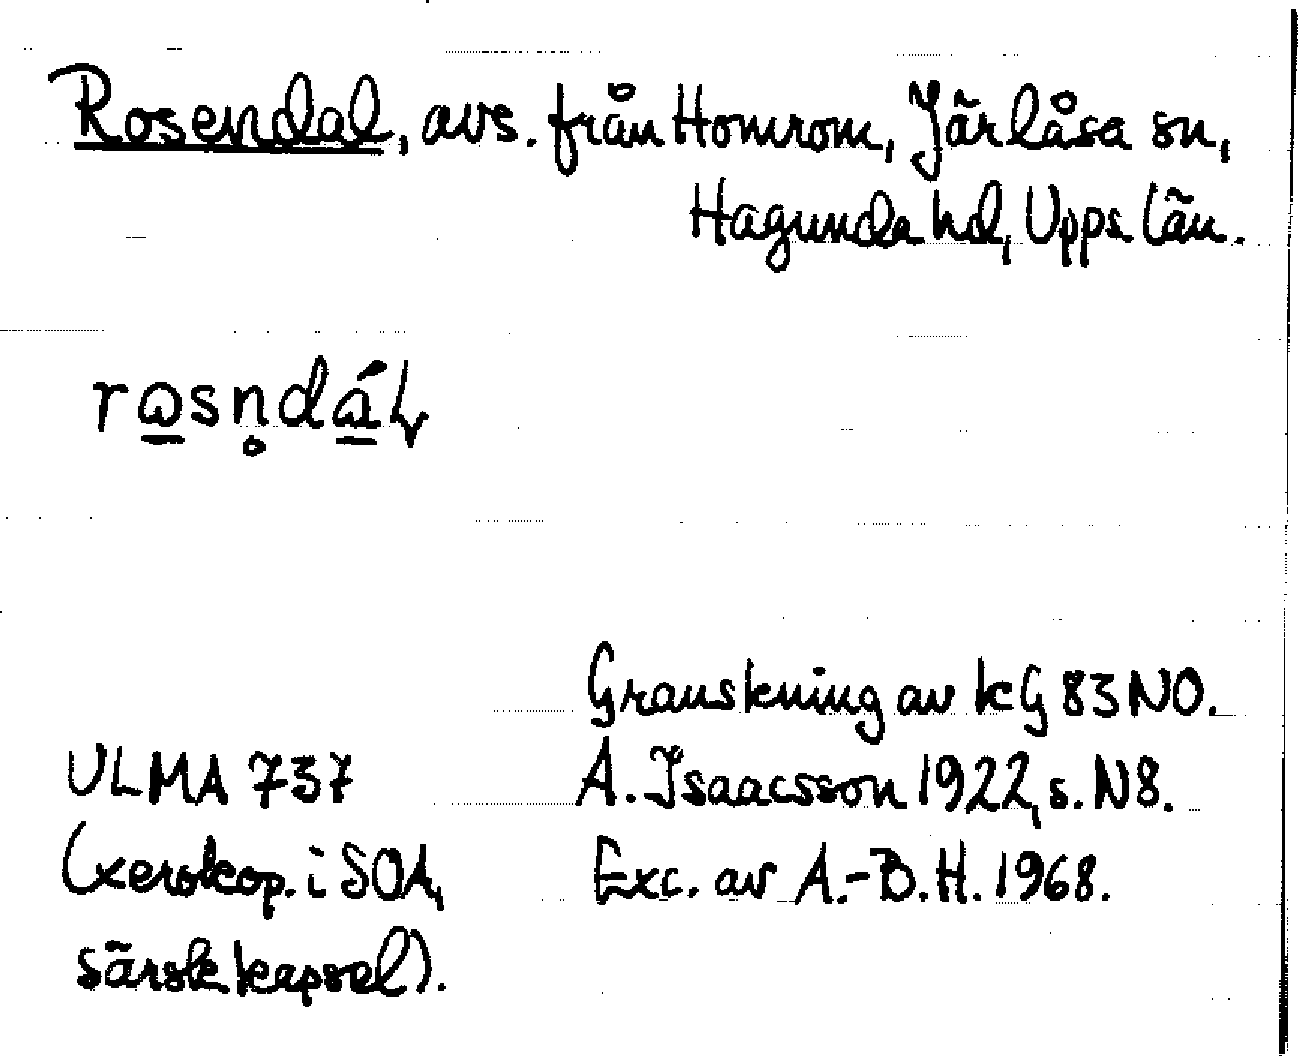 Rosendal, avs. från Homrom, Järlåsa sn,
Hagunda hd, Upps län.
rɷ̲sn̥dá̲ɫ
Granskning av kG 83 NO.
ULMA 737 A. Isaacsson 1922, s. N8.
(xerokop. i SOA, Exc. av A.-B.H. 1968.
särsk kapsel).